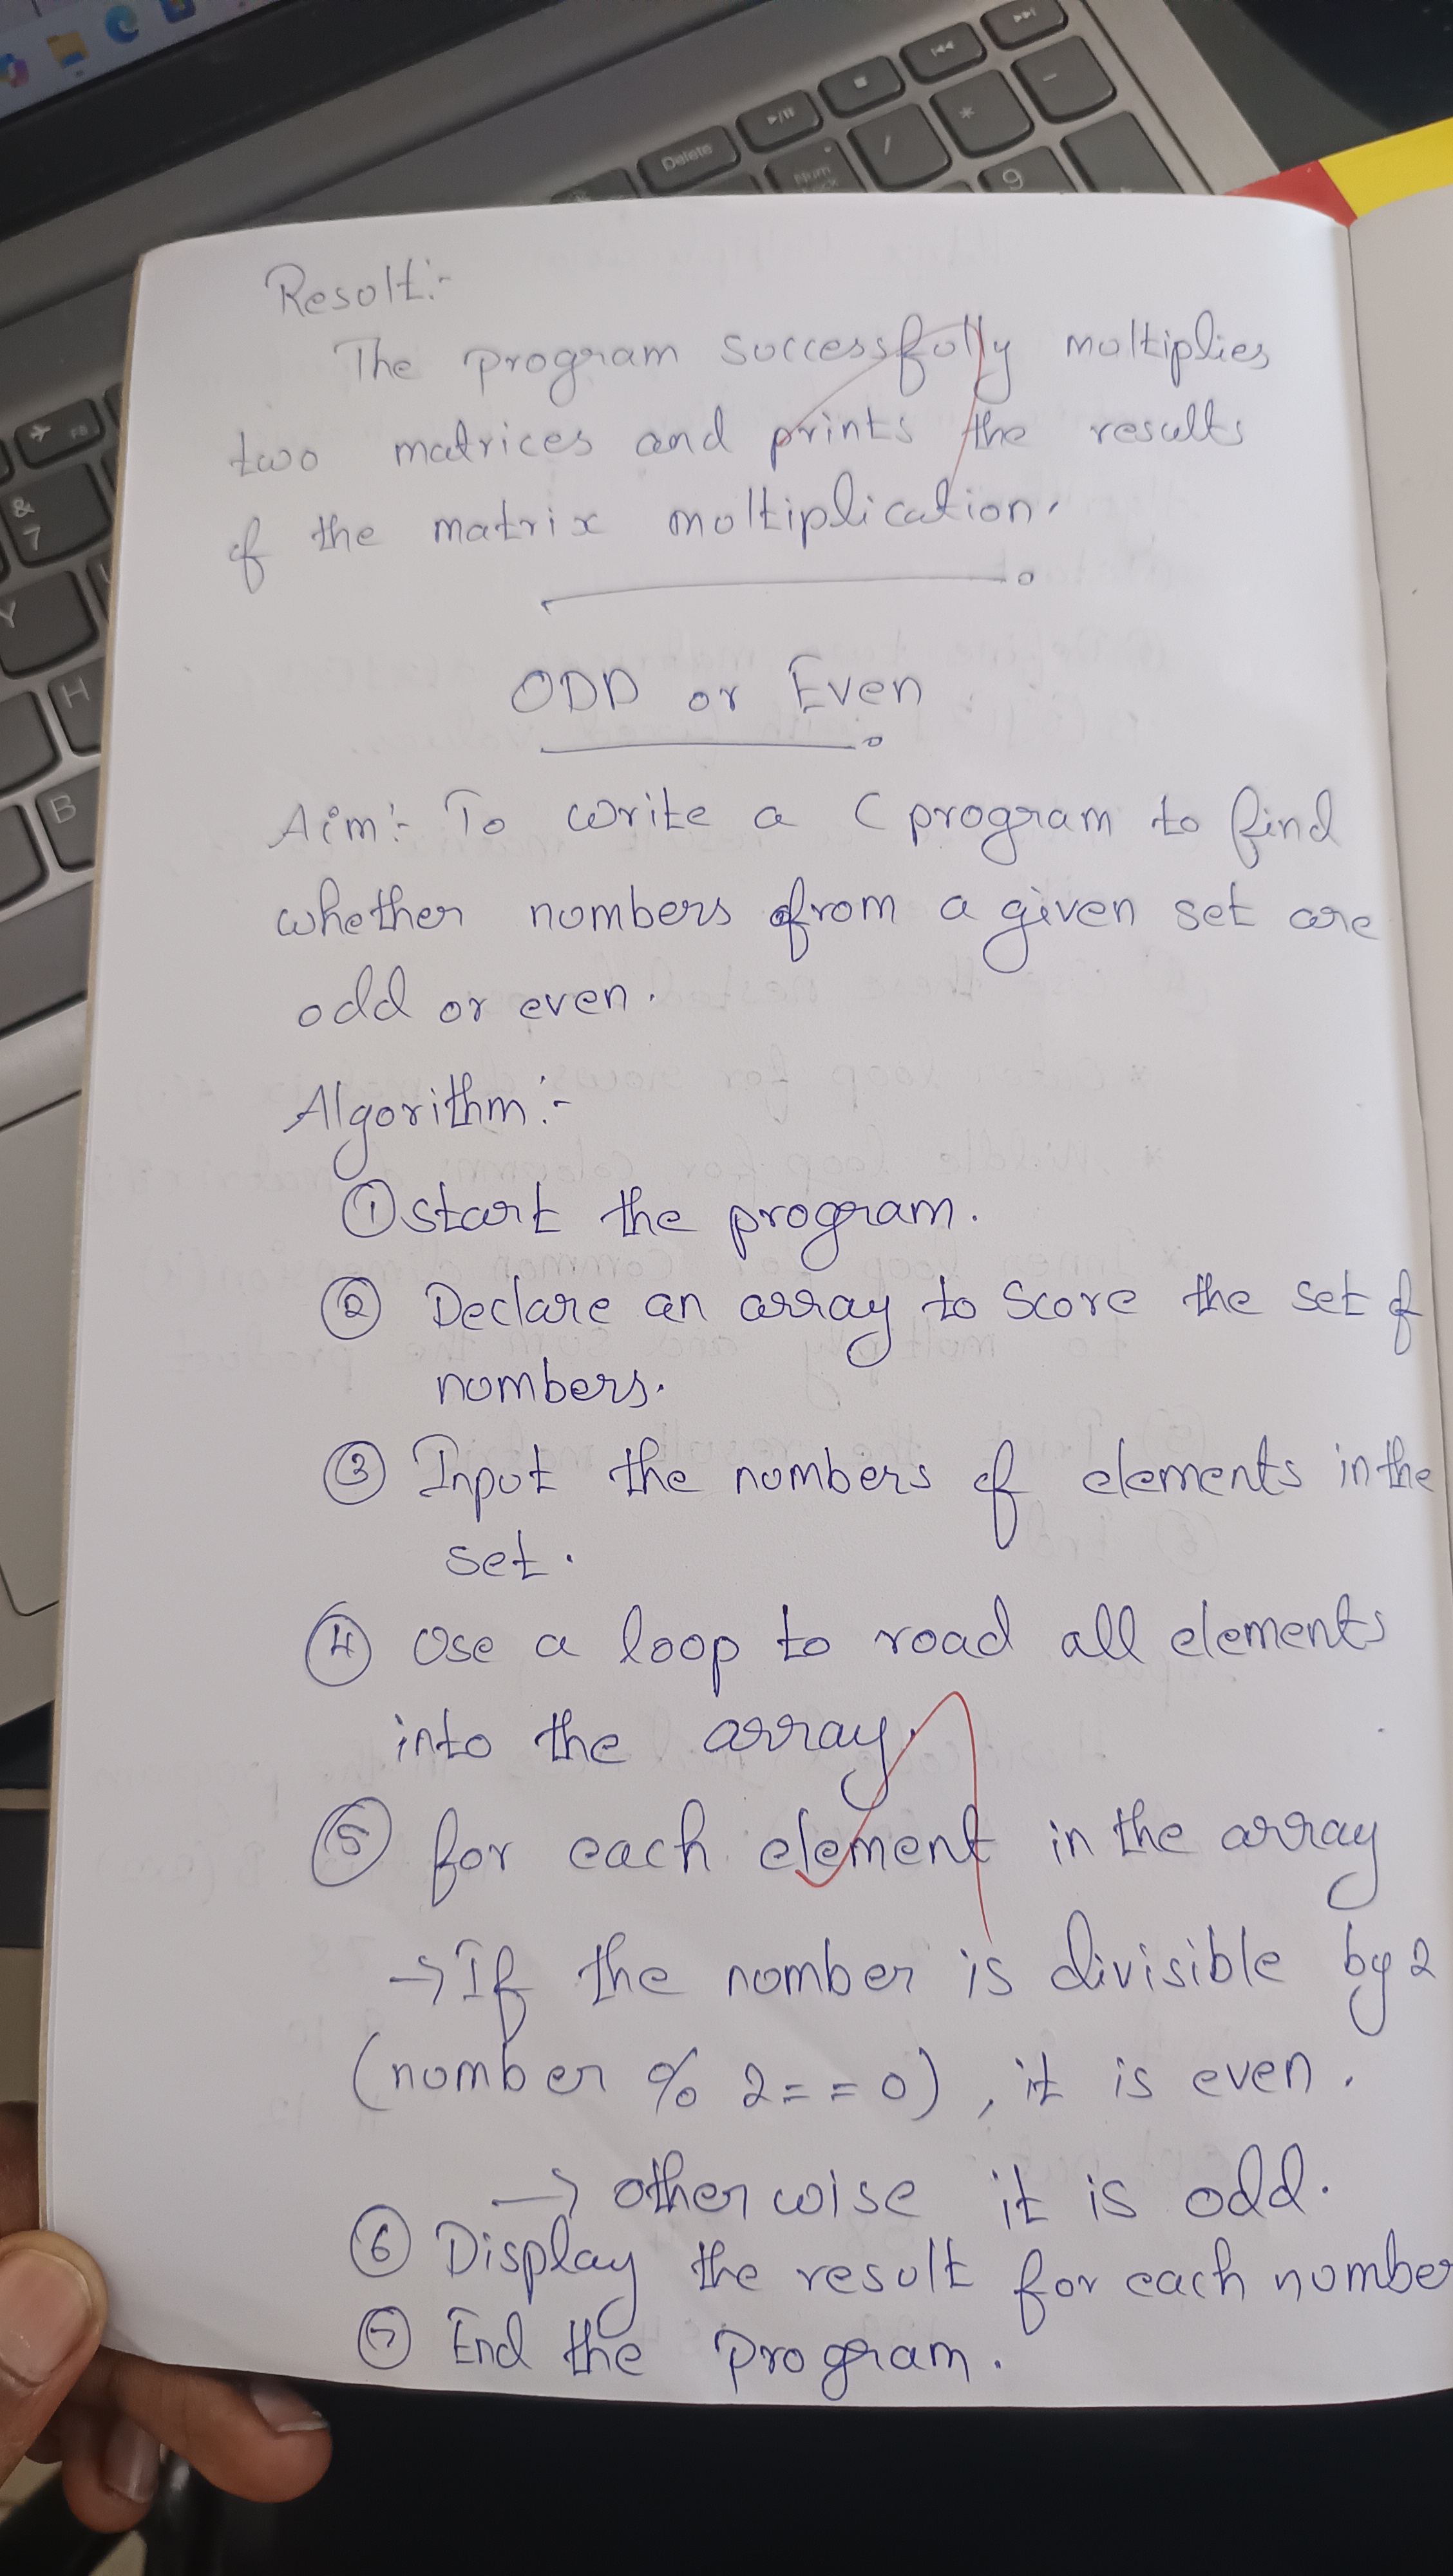 Delete
Num
/
*
-
9
&
7
Y
H
B
F8
Result:-
The program successfully multiplies
two matrices and prints the results
of the matrix multiplication.
ODD or Even
Aim:- To write a C program to find
whether numbers from a given set are
odd or even.
Algorithm:-
① start the program.
② Declare an array to Score the set of
numbers.
③ Input the numbers of elements in the
set.
④ Use a loop to road all elements
into the array.
⑤ for each element in the array
→ If the number is divisible by 2
(number % 2 == 0), it is even.
→ otherwise it is odd.
⑥ Display the result for each number
⑦ End the program.